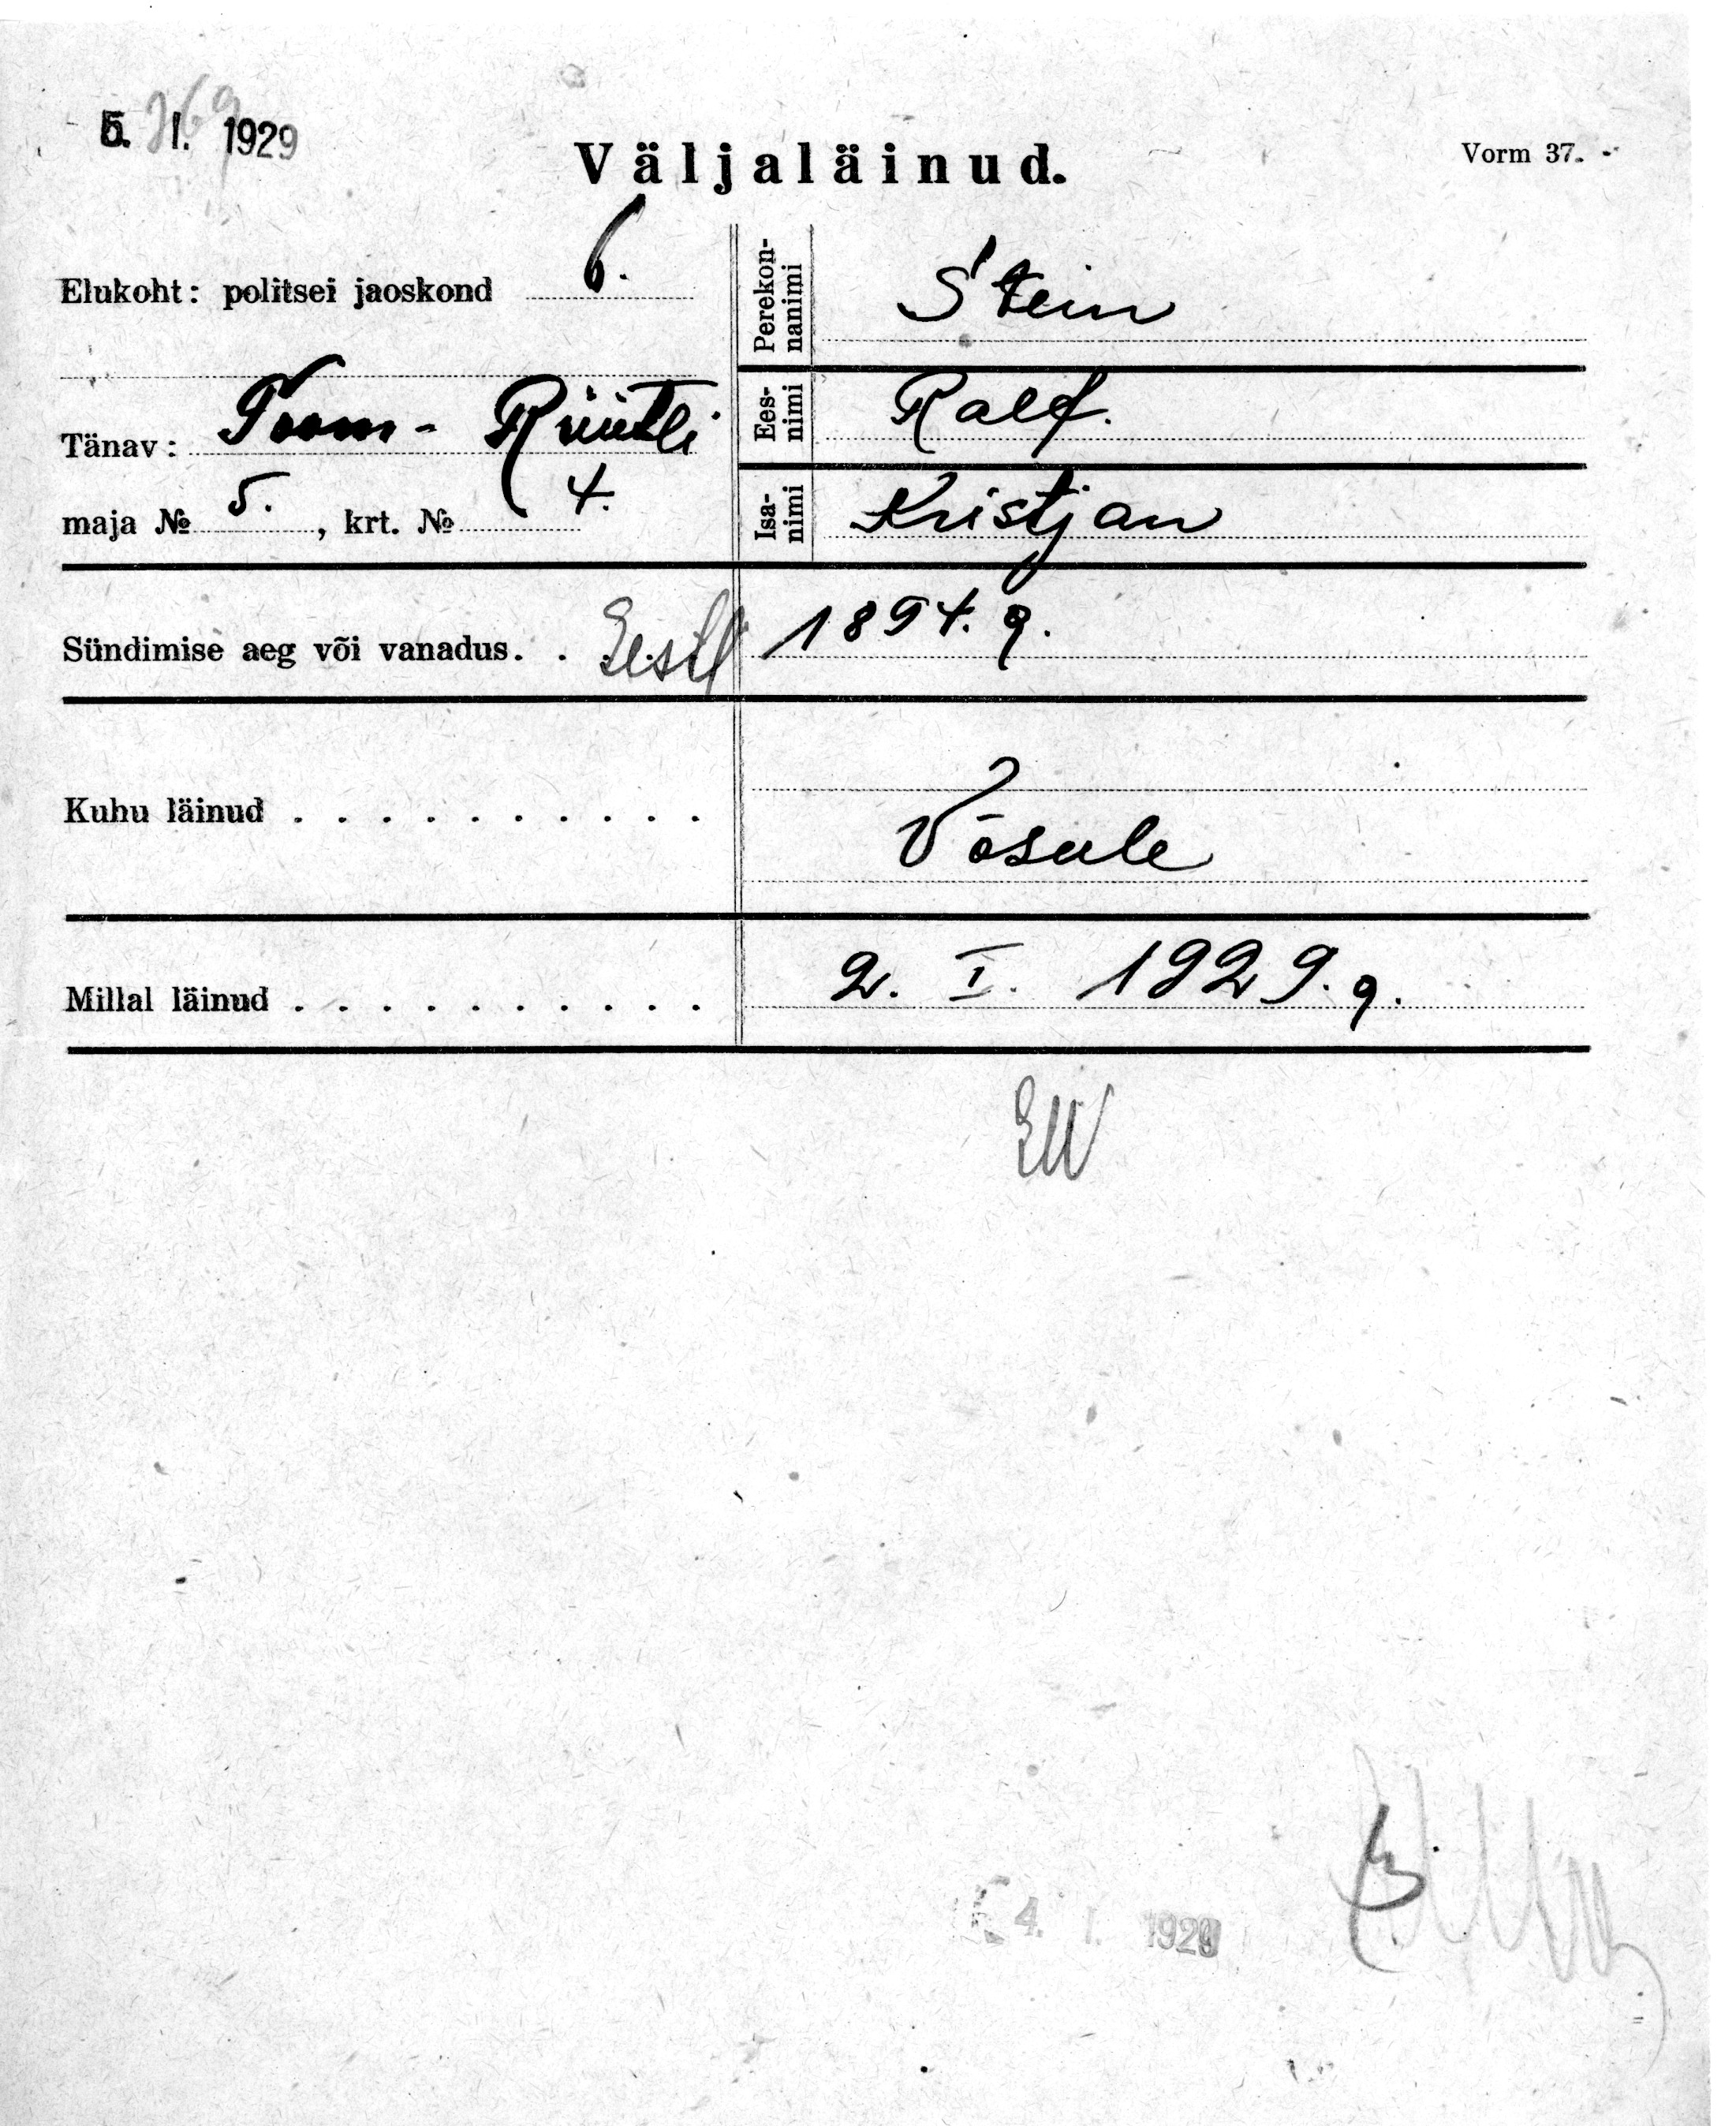 5. I. 1929
Väljaläinud.
Vorm 37.
Elukoht: politsei jaoskond 6.
Tänav: Toom-Rüütli
maja № 5. , krt. № 4.
Perekon-
nanimi
Stein
Ees-
nimi
Ralf.
Isa-
nimi
Kristjan
Sündimise aeg või vanadus. . Eesti 1894. g.
Kuhu läinud . . . . . . . . . . Võsule
Millal läinud . . . . . . . . . . 2. I. 1929. g.
EW
4. I. 1929